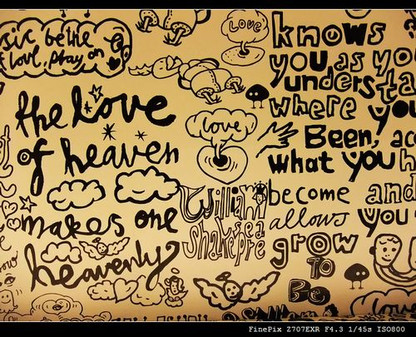 sic be the
of love, play on
Love
the love
of heaven
makes one
heavenly
love
William
Shakespeare
knows
you as you
understa
where yo
Been, ac
what you h
become and
allows you
grow
TO
Be
FinePix Z707EXR F4.3 1/45s ISO800